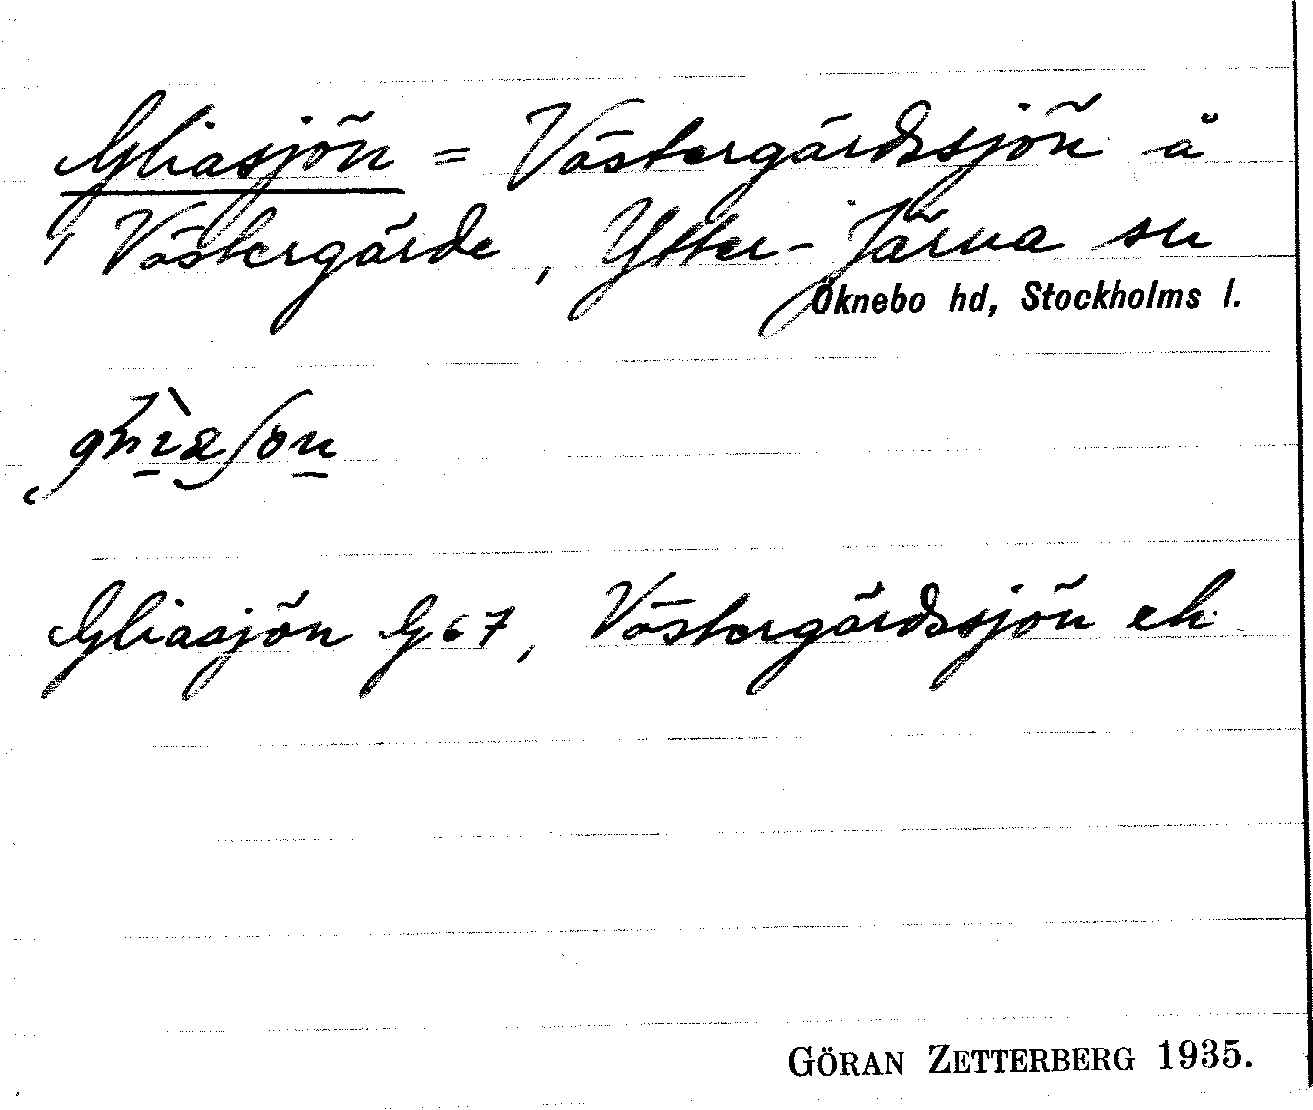 Gliasjön = Västergärdssjön å
Västergärde, Ytter-Järna sn
Öknebo hd, Stockholms l.
Gliasjön G 67, Västergärdssjön ek
GÖRAN ZETTERBERG 1935.